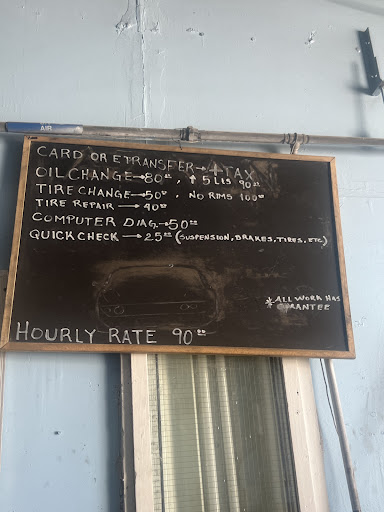 AIR
CARD OR ETRANSFER → + TAX
OIL CHANGE → 80⁰⁰, ↑ 5 LIS 90⁰⁰
TIRE CHANGE → 50⁰⁰, NO RIMS 100⁰⁰
TIRE REPAIR → 40⁰⁰
COMPUTER DIAG. → 50⁰⁰
QUICK CHECK → 25⁰⁰ (SUSPENSION, BRAKES, TIRES, ETC)
* ALL WORK HAS
GURANTEE
HOURLY RATE 90⁰⁰